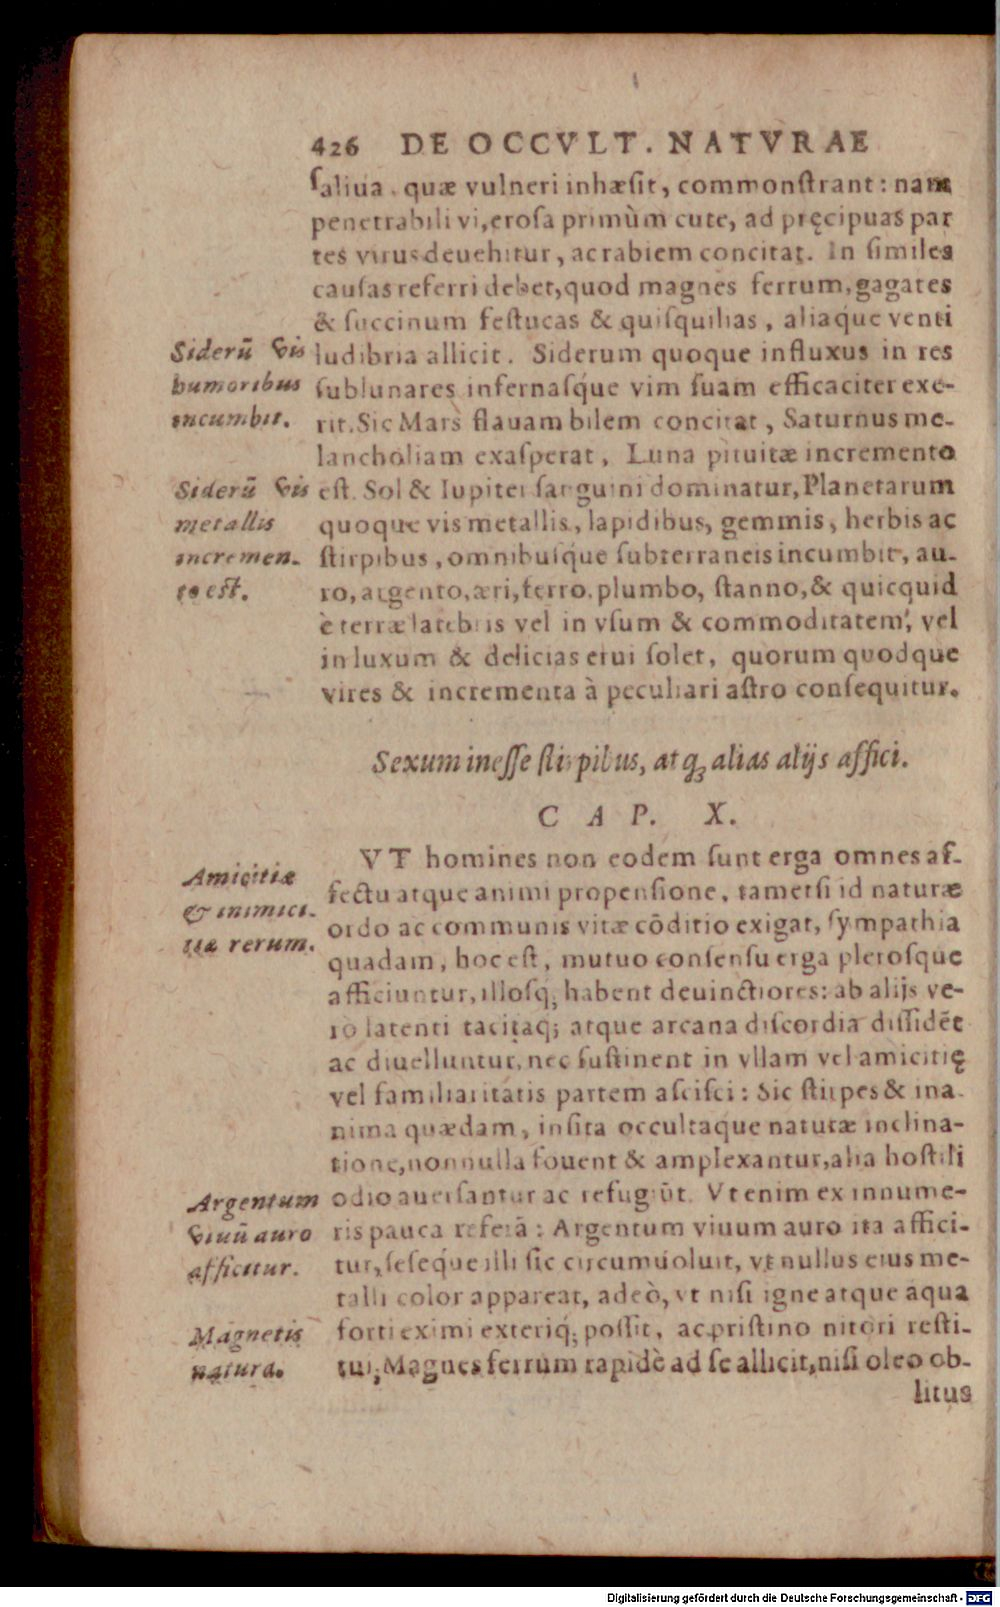 426 DE OCCVLT. NATVRAE
ſaliua quæ vulneri inhæſit, commonſtrant: nam
penetrabili vi, eroſa primùm cute, ad pręcipuas par
tes virus deuehitur, ac rabiem concitat. In ſimiles
cauſas referri debet, quod magnes ferrum, gagates
& ſuccinum feſtucas & quiſquilias, aliaq́ue venti
ludibria allicit. Siderum quoque influxus in res
ſublunares infernaſq́ue vim ſuam efficaciter exe-
rit. Sic Mars flauam bilem concitat, Saturnus me-
lancholiam exaſperat, Luna pituitæ incremento
eſt. Sol & Iupiter ſanguini dominatur, Planetarum
quoque vis metallis, lapidibus, gemmis, herbis ac
ſtirpibus, omnibuſq́ue ſubterraneis incumbit, au-
ro, argento, æri, ferro, plumbo, ſtanno, & quicquid
è terræ latebris vel in vſum & commoditatem, vel
in luxum & delicias erui ſolet, quorum quodque
vires & incrementa à peculiari aſtro conſequitur.
Siderū vis
humoribus
incumbit.
Siderū vis
metallis
incremen-
to eſt.
Sexum ineſſe ſtirpibus, atq; alias alijs affici.
CAP. X.
VT homines non eodem ſunt erga omnes af-
fectu atque animi propenſione, tametſi id naturæ
ordo ac communis vitæ cōditio exigat, ſympathia
quadam, hoc eſt, mutuo conſenſu erga pleroſque
afficiuntur, illoſq; habent deuinctiores: ab alijs ve-
rò latenti tacitaq; atque arcana diſcordia diſſidēt
ac diuelluntur, nec ſuſtinent in vllam vel amicitię
vel familiaritatis partem aſciſci: Sic ſtirpes & ina-
nima quædam, inſita occultaque naturæ inclina-
tione, nonnulla fouent & amplexantur, alia hoſtili
odio auerſantur ac refugiūt. Vt enim ex innume-
ris pauca referā: Argentum viuum auro ita affici-
tur, ſeſeq́ue illi ſic circumuoluit, vt nullus eius me-
talli color appareat, adeò, vt niſi igne atque aqua
forti eximi exteriq; poſſit, ac priſtino nitori reſti-
tui, Magnes ferrum rapidè ad ſe allicit, niſi oleo ob-
litus
Amicitiæ
& inimici-
tiæ rerum.
Argentum
viuū auro
afficitur.
Magnetis
natura.
Digitalisierung gefördert durch die Deutsche Forschungsgemeinschaft - DFG